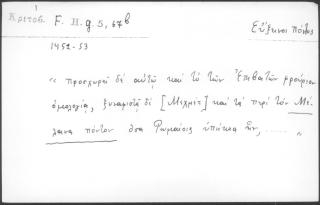 Κριτοβ. F. H. g. 5, 67b
Εὔξεινος πόντος
1452-53
« προσχωρεῖ δὲ αὐτῷ καὶ τὸ τῶν Ἐπιβατῶν φρούριον
ὁμολογίᾳ, ξυναφιστᾷ δὲ [Μεχμὲτ] καὶ τὰ περὶ τὸν Μέ-
λαινα πόντον ὅσα Ῥωμαίοις ὑπήκοα ἦν, ...... »